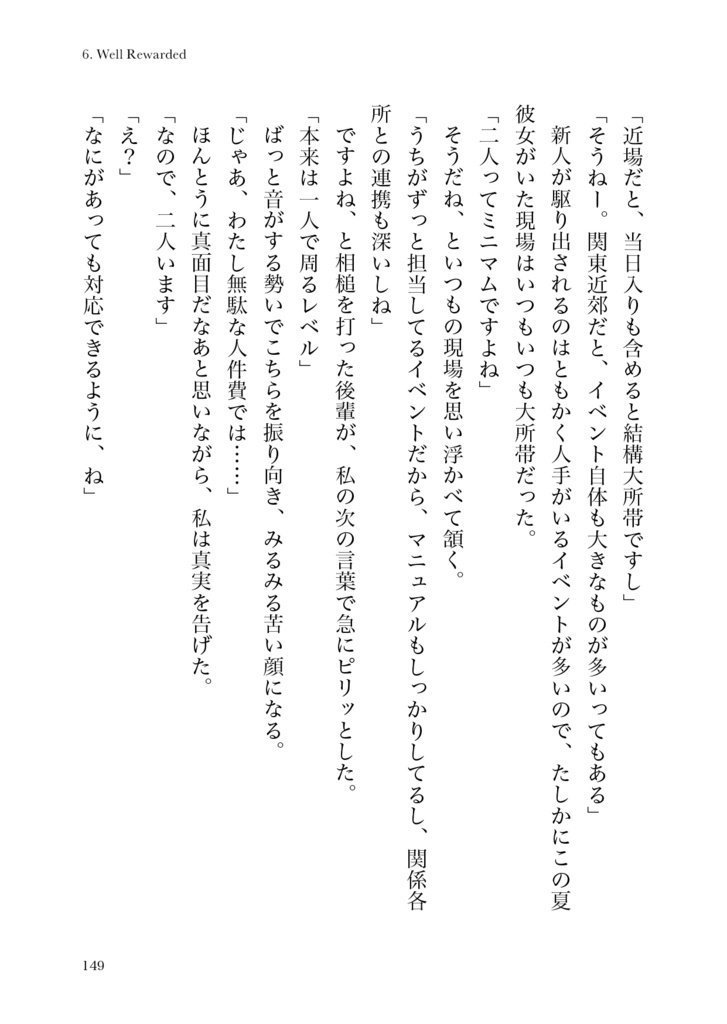 6. Well Rewarded
「近場だと、当日入りも含めると結構大所帯ですし」
「そうねー。関東近郊だと、イベント自体も大きなものが多いってもある」
新人が駆り出されるのはともかく人手がいるイベントが多いので、たしかにこの夏
彼女がいた現場はいつもいつも大所帯だった。
「二人ってミニマムですよね」
そうだね、といつもの現場を思い浮かべて頷く。
「うちがずっと担当してるイベントだから、マニュアルもしっかりしてるし、関係各
所との連携も深いしね」
ですよね、と相槌を打った後輩が、私の次の言葉で急にピリッとした。
「本来は一人で周るレベル」
ばっと音がする勢いでこちらを振り向き、みるみる苦い顔になる。
「じゃあ、わたし無駄な人件費では……」
ほんとうに真面目だなあと思いながら、私は真実を告げた。
「なので、二人います」
「え？」
「なにがあっても対応できるように、ね」
149